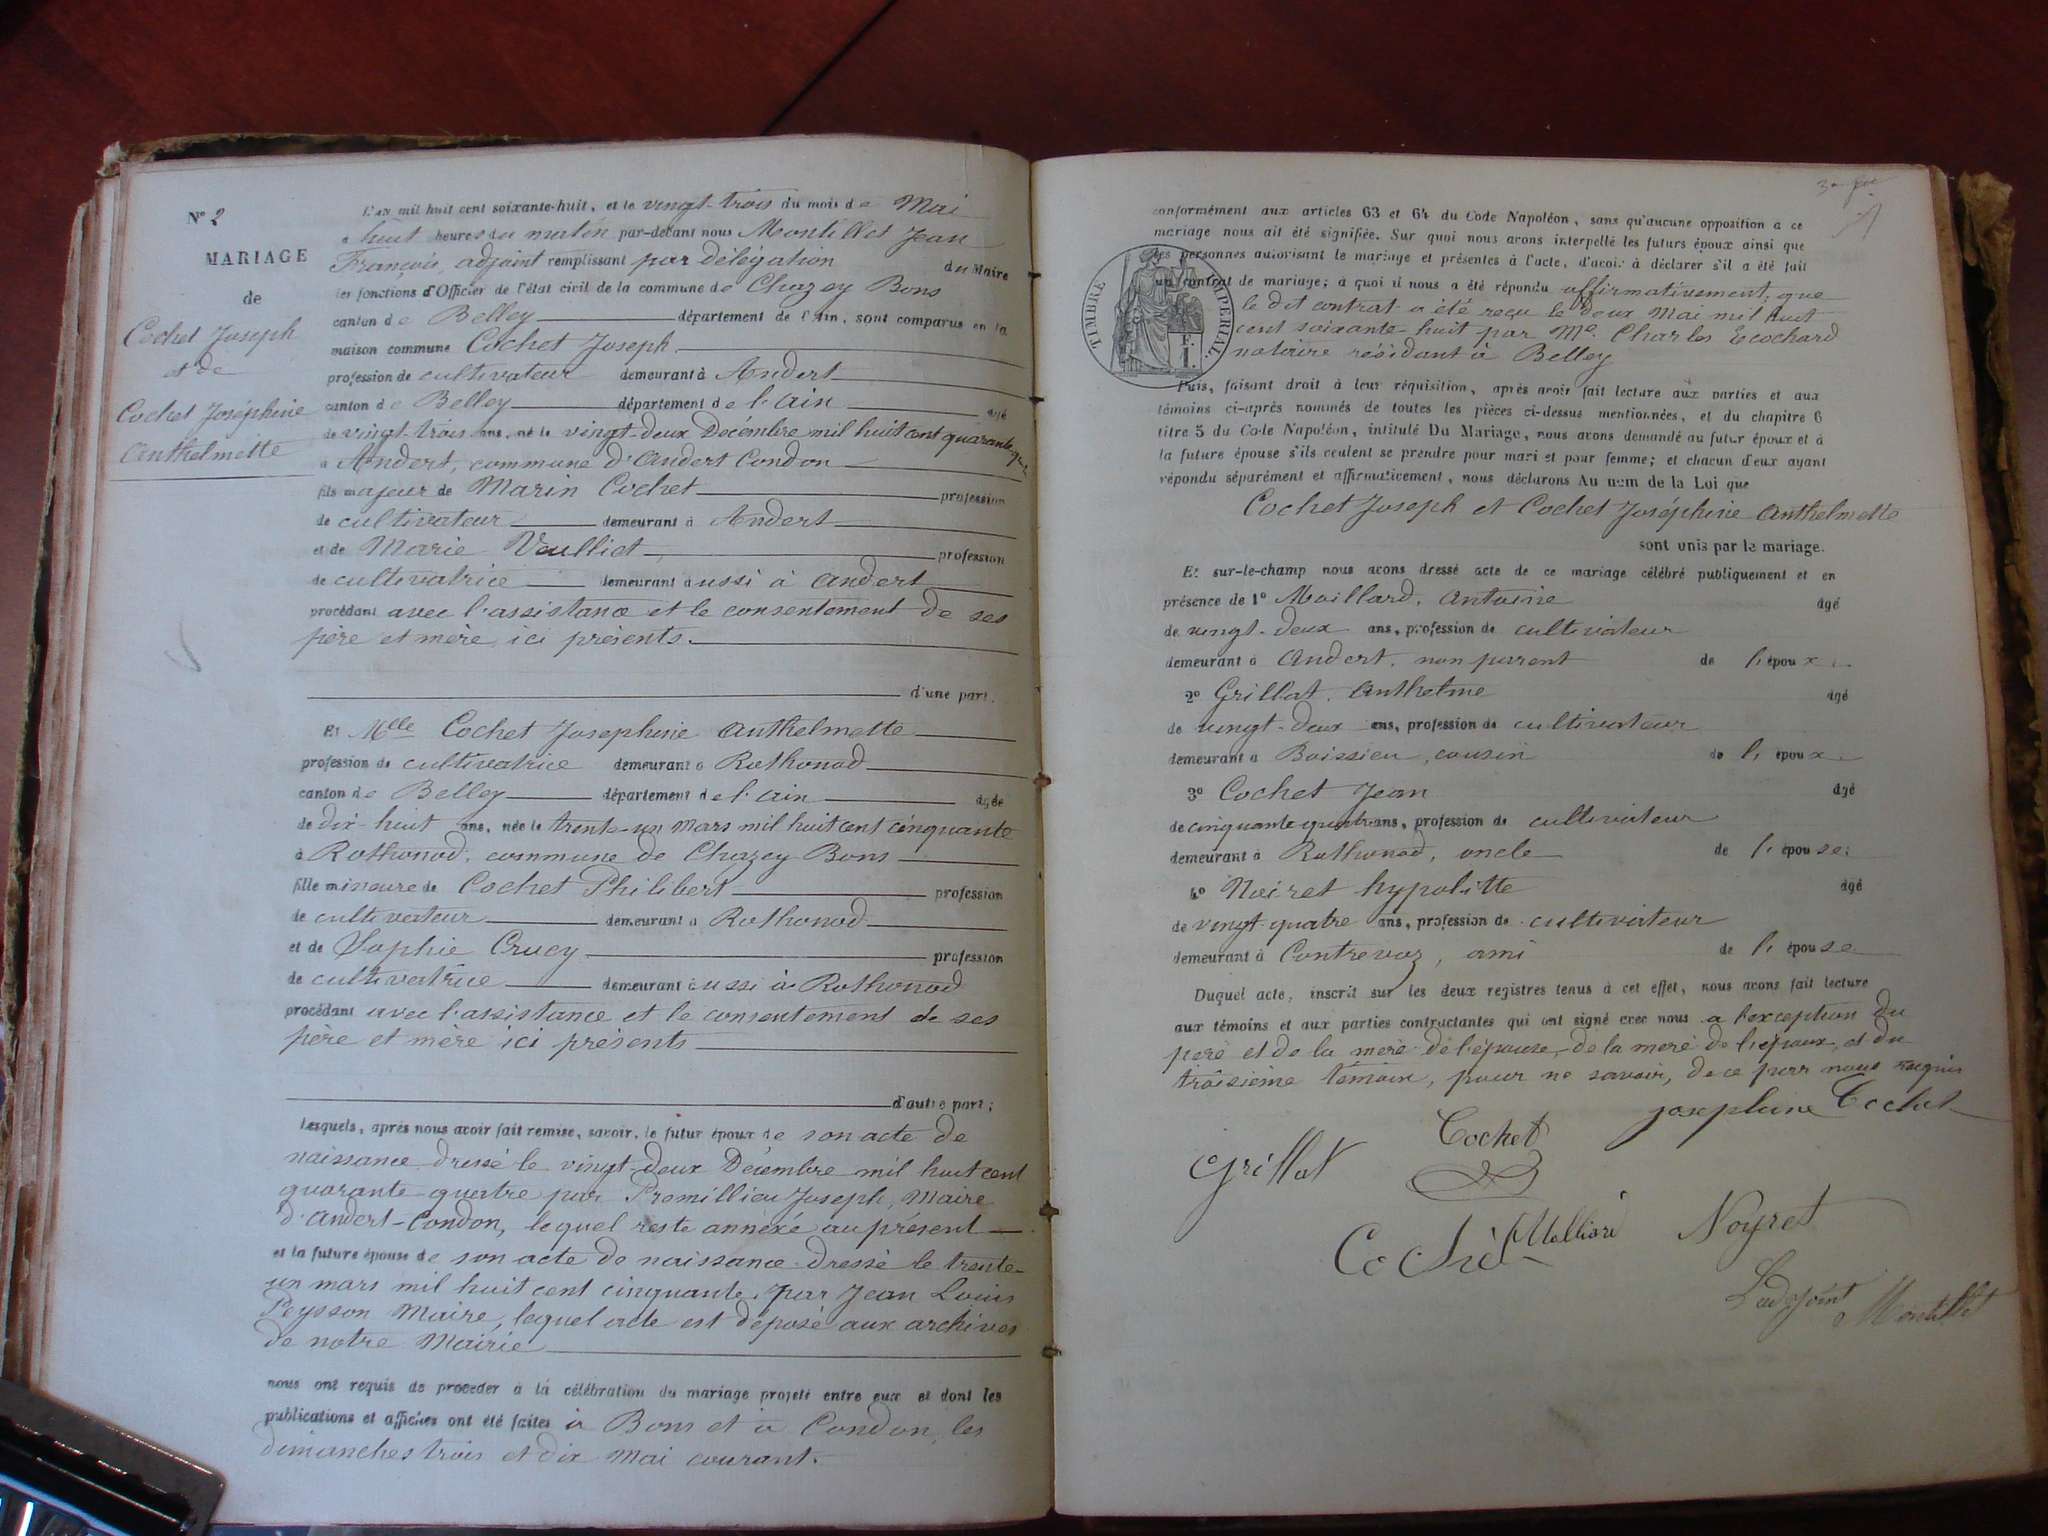 N° 2
MARIAGE
de
Cochet Joseph
et de
Cochet Joséphine
Anthelmette
L'AN mil huit cent soixante-huit, et le vingt-trois du mois de Mai
à huit heures du matin par-devant nous Montillet Jean
François, adjoint remplissant par délégation du Maire
les fonctions d'Officier de l'état civil de la commune de Chazey Bons
canton de Belley département de l'Ain, sont comparus en la
maison commune Cochet Joseph
profession de cultivateur demeurant à Andert
canton de Belley département de l'Ain âgé
de vingt-trois ans, né le vingt-deux Decembre mil huit cent quarante-quatre
à Andert, commune d'Andert Condon
fils majeur de Marin Cochet profession
de cultivateur demeurant à Andert
et de Marie Vulliet profession
de cultivatrice demeurant aussi à Andert
procédant avec l'assistance et le consentement de ses
père et mère ici présents.
d'une part.
Et Mlle Cochet Josephine Anthelmette
profession de cultivatrice demeurant à Rothonod
canton de Belley département de l'Ain âgée
de dix-huit ans, née le trente-un Mars mil huit cent cinquante
à Rothonod, commune de Chazey Bons
fille mineure de Cochet Philibert profession
de cultivateur demeurant à Rothonod
et de Sophie Crucy profession
de cultivatrice demeurant aussi à Rothonod
procédant avec l'assistance et le consentement de ses
père et mère ici présents
d'autre part;
Lesquels, après nous avoir fait remise, savoir, le futur époux de son acte de
naissance dressé le vingt-deux Décembre mil huit cent
quarante-quatre par Promillieu Joseph, Maire
d'Andert-Condon, lequel reste annexé au présent
et la future épouse de son acte de naissance dressé le trente-
un mars mil huit cent cinquante, par Jean Louis
Peysson Maire, lequel acte est déposé aux archives
de notre Mairie
nous ont requis de procéder à la célébration du mariage projeté entre eux et dont les
publications et affiches ont été faites à Bons et à Condon, les
dimanches trois et dix Mai courant.
conformément aux articles 63 et 64 du Code Napoléon, sans qu'aucune opposition a ce
mariage nous ait été signifiée. Sur quoi nous avons interpellé les futurs époux ainsi que
les personnes autorisant le mariage et présentes à l'acte, d'avoir à déclarer s'il a été fait
un contrat de mariage; à quoi il nous a été répondu affirmativement, que
le dit contrat a été reçu le deux Mai mil huit
cent soixante-huit par Me Charles Ecochard
notaire résidant à Belley
TIMBRE IMPERIAL.
F.
1.
Puis, faisant droit à leur réquisition, après avoir fait lecture aux parties et aux
témoins ci-après nommés de toutes les pièces ci-dessus mentionnées, et du chapitre 6
titre 5 du Code Napoléon, intitulé Du Mariage, nous avons demandé au futur époux et à
la future épouse s'ils veulent se prendre pour mari et pour femme; et chacun d'eux ayant
répondu séparément et affirmativement, nous déclarons Au nom de la Loi que
Cochet Joseph et Cochet Joséphine Anthelmette
sont unis par le mariage.
Et sur-le-champ nous avons dressé acte de ce mariage célébré publiquement et en
présence de 1° Maillard, Antoine âgé
de vingt-deux ans, profession de cultivateur
demeurant à Andert, non parent de l'époux
2° Grillat, Anthelme âgé
de vingt-deux ans, profession de cultivateur
demeurant à Boissieu, cousin de l'époux
3° Cochet Jean âgé
de cinquante quatre ans, profession de cultivateur
demeurant à Rothonod, oncle de l'épouse
4° Noiret hypolitte âgé
de vingt-quatre ans, profession de cultivateur
demeurant à Contrevoz, ami de l'épouse
Duquel acte, inscrit sur les deux registres tenus à cet effet, nous avons fait lecture
aux témoins et aux parties contractantes qui ont signé avec nous a l'exception du
père et de la mère de l'épouse, de la mère de l'époux, et du
troisième témoin, pour ne savoir, de ce par nous requis
josephine Cochet
Cochet
Grillat
Cochet
Malliard
Noyret
L'adjoint Montillet